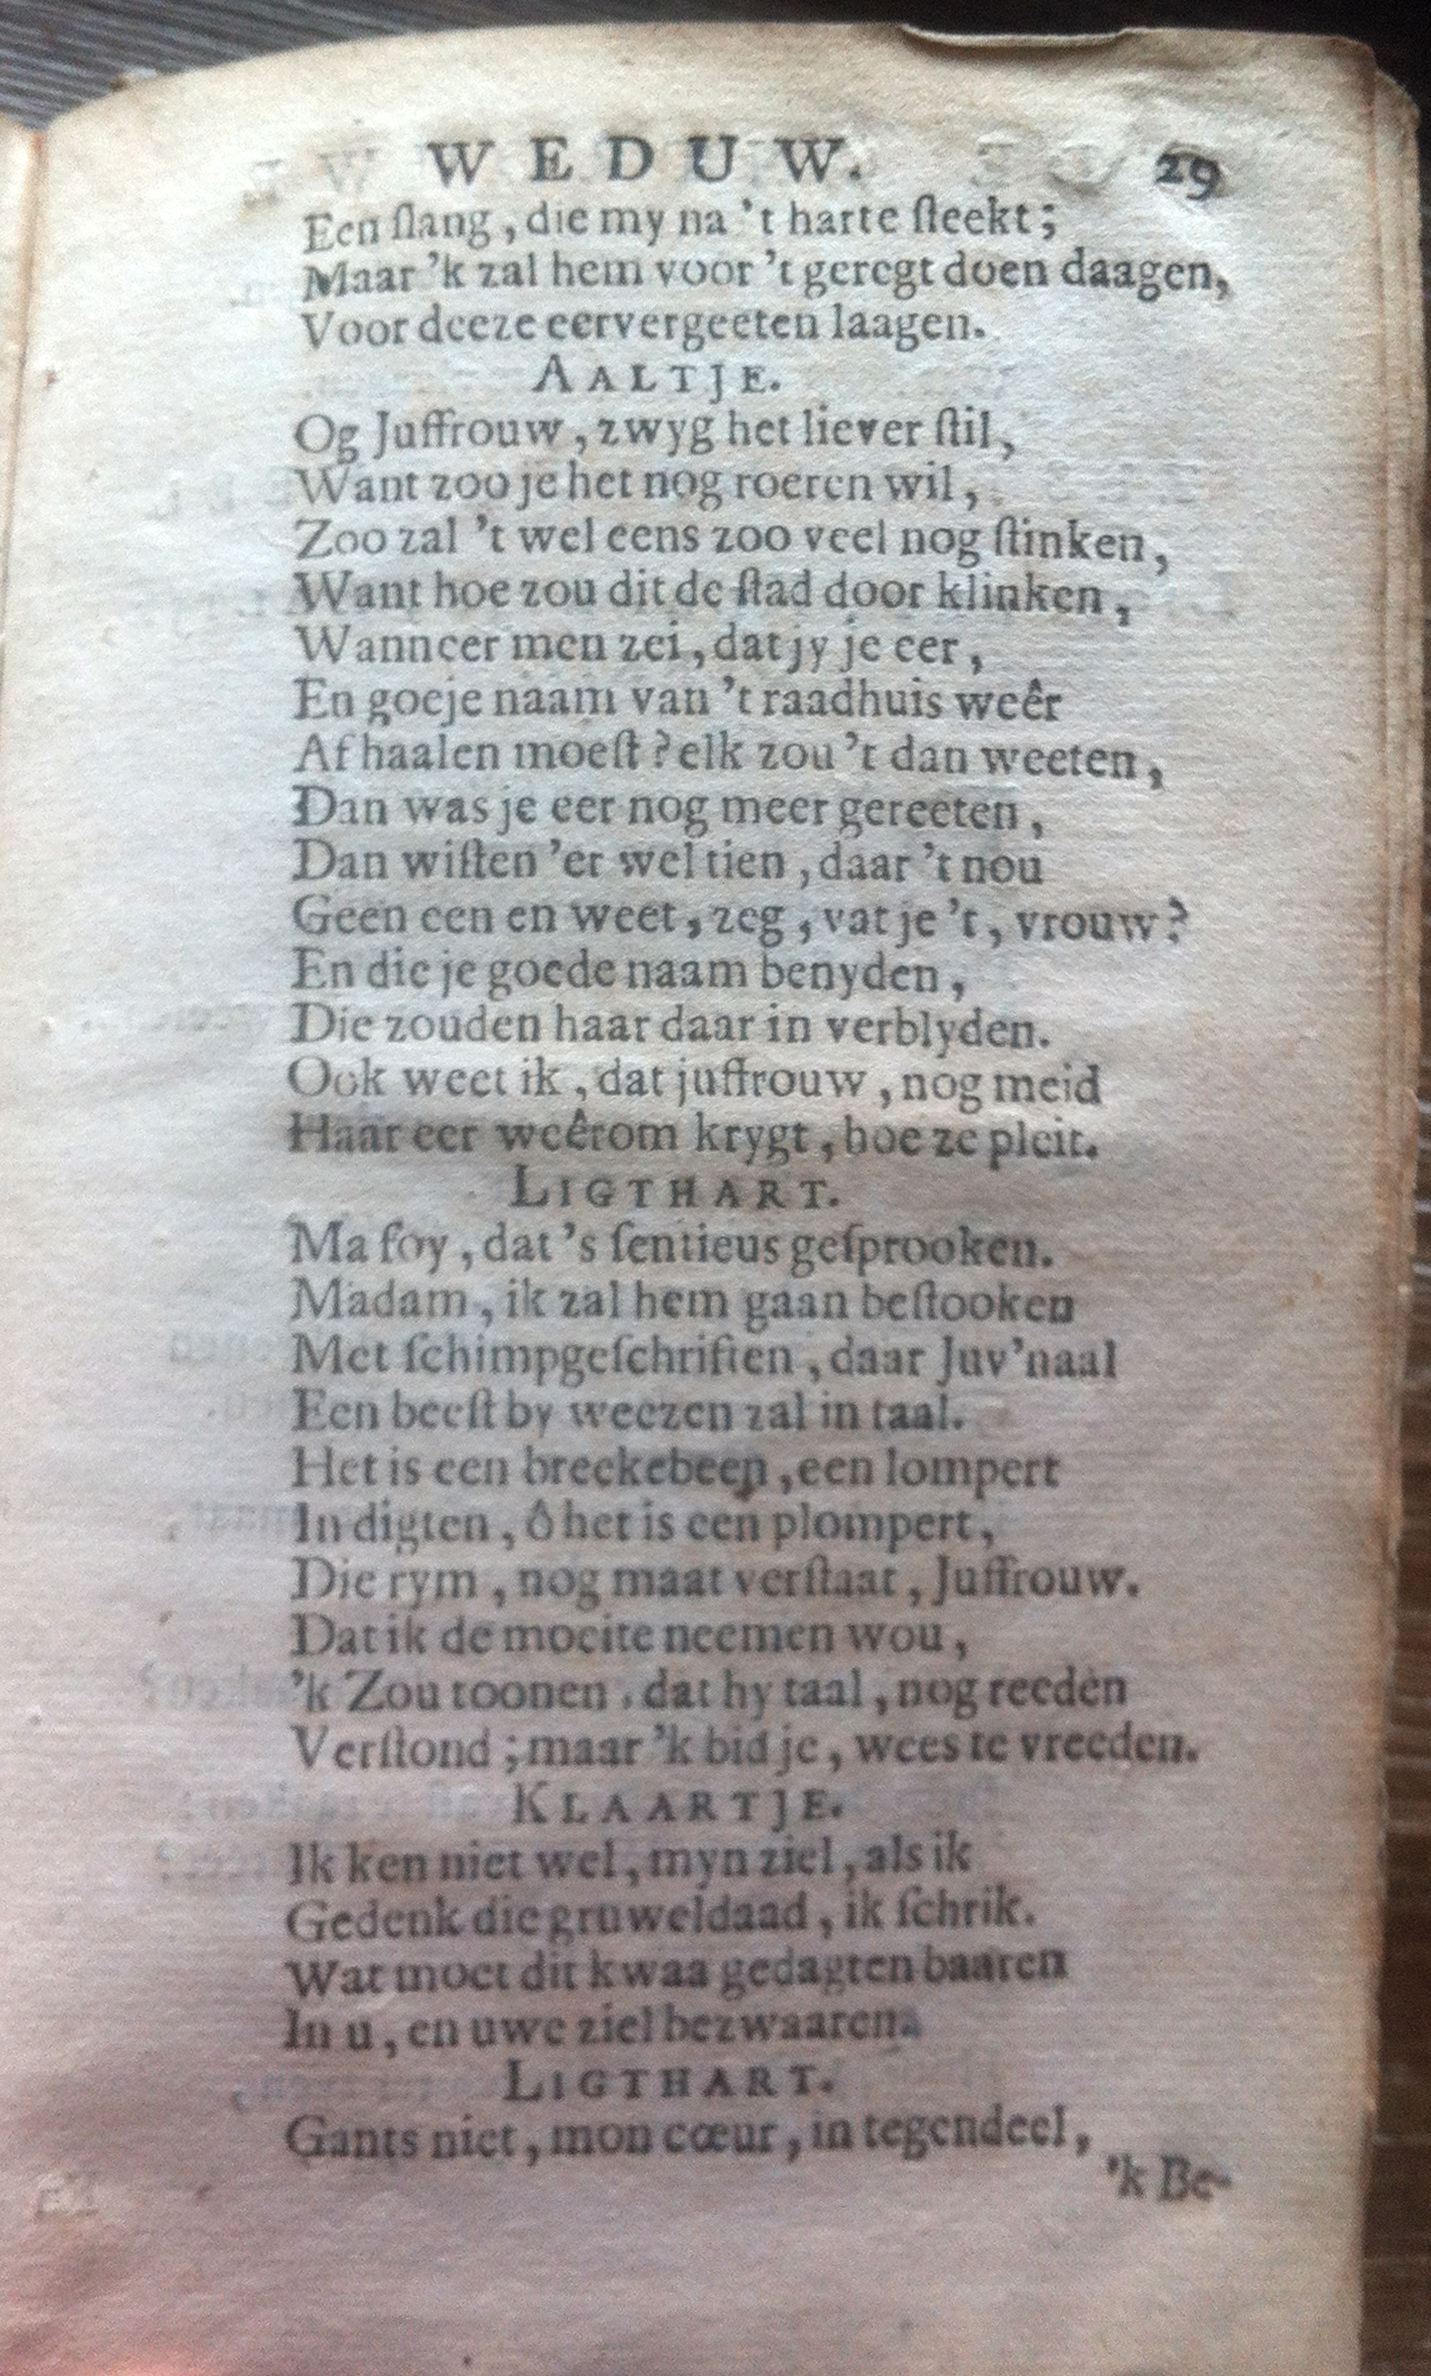 WEDUW. 29
Een ſlang, die my na 't harte ſteekt;
Maar 'k zal hem voor 't geregt doen daagen,
Voor deeze eervergeeten laagen.
AALTJE.
Og Juffrouw, zwyg het liever ſtil,
Want zoo je het nog roeren wil,
Zoo zal 't wel eens zoo veel nog ſtinken,
Want hoe zou dit de ſtad door klinken,
Wanneer men zei, dat jy je eer,
En goeje naam van 't raadhuis weêr
Af haalen moeſt? elk zou 't dan weeten,
Dan was je eer nog meer gereeten,
Dan wiſten 'er wel tien, daar 't nou
Geen een en weet, zeg, vat je 't, vrouw?
En die je goede naam benyden,
Die zouden haar daar in verblyden.
Ook weet ik, dat juffrouw, nog meid
Haar eer weêrom krygt, hoe ze pleit.
LIGTHART.
Ma foy, dat 's ſentieus geſprooken.
Madam, ik zal hem gaan beſtooken
Met ſchimpgeſchriften, daar Juv'naal
Een beeſt by weezen zal in taal.
Het is een breekebeen, een lompert
In digten, ô het is een plompert,
Die rym, nog maat verſtaat, Juffrouw.
Dat ik de moeite neemen wou,
'k Zou toonen, dat hy taal, nog reeden
Verſtond; maar 'k bid je, wees te vreeden.
KLAARTJE.
Ik ken niet wel, myn ziel, als ik
Gedenk die gruweldaad, ik ſchrik.
Wat moet dit kwaa gedagten baaren
In u, en uwe ziel bezwaaren.
LIGTHART.
Gants niet, mon cœur, in tegendeel,
'k Be-